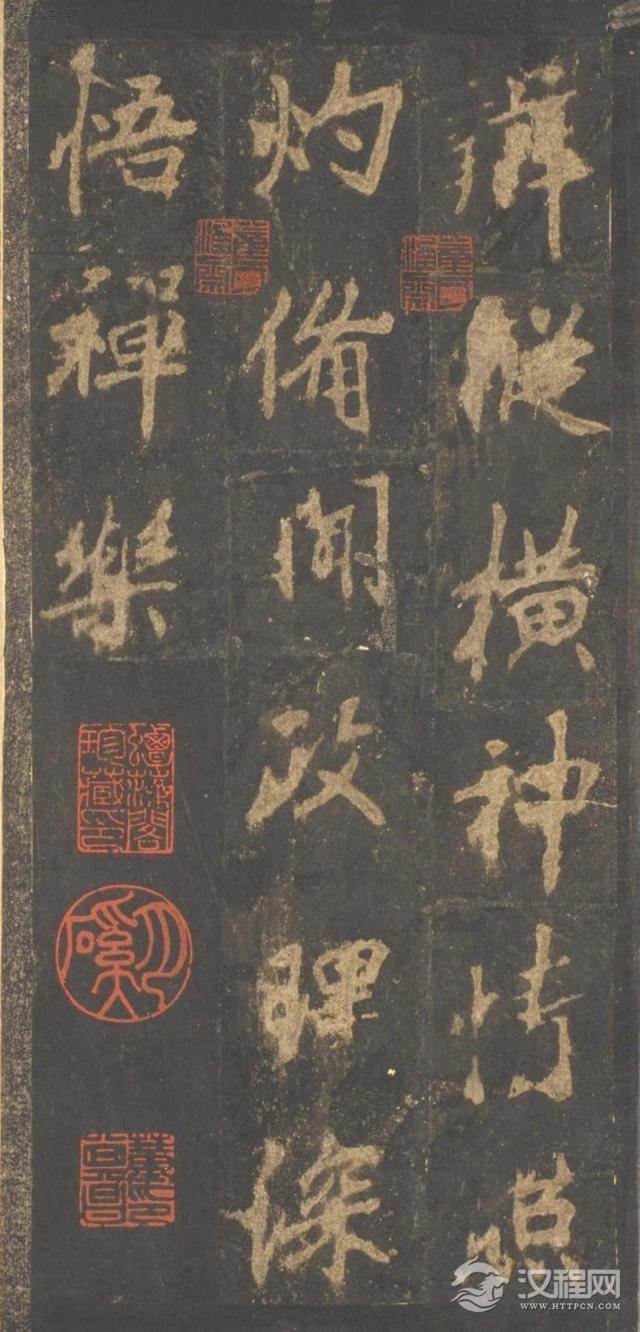 縱橫神情照
灼備聞政理深
悟禪樂
汉程网
WWW.HTTPCN.COM